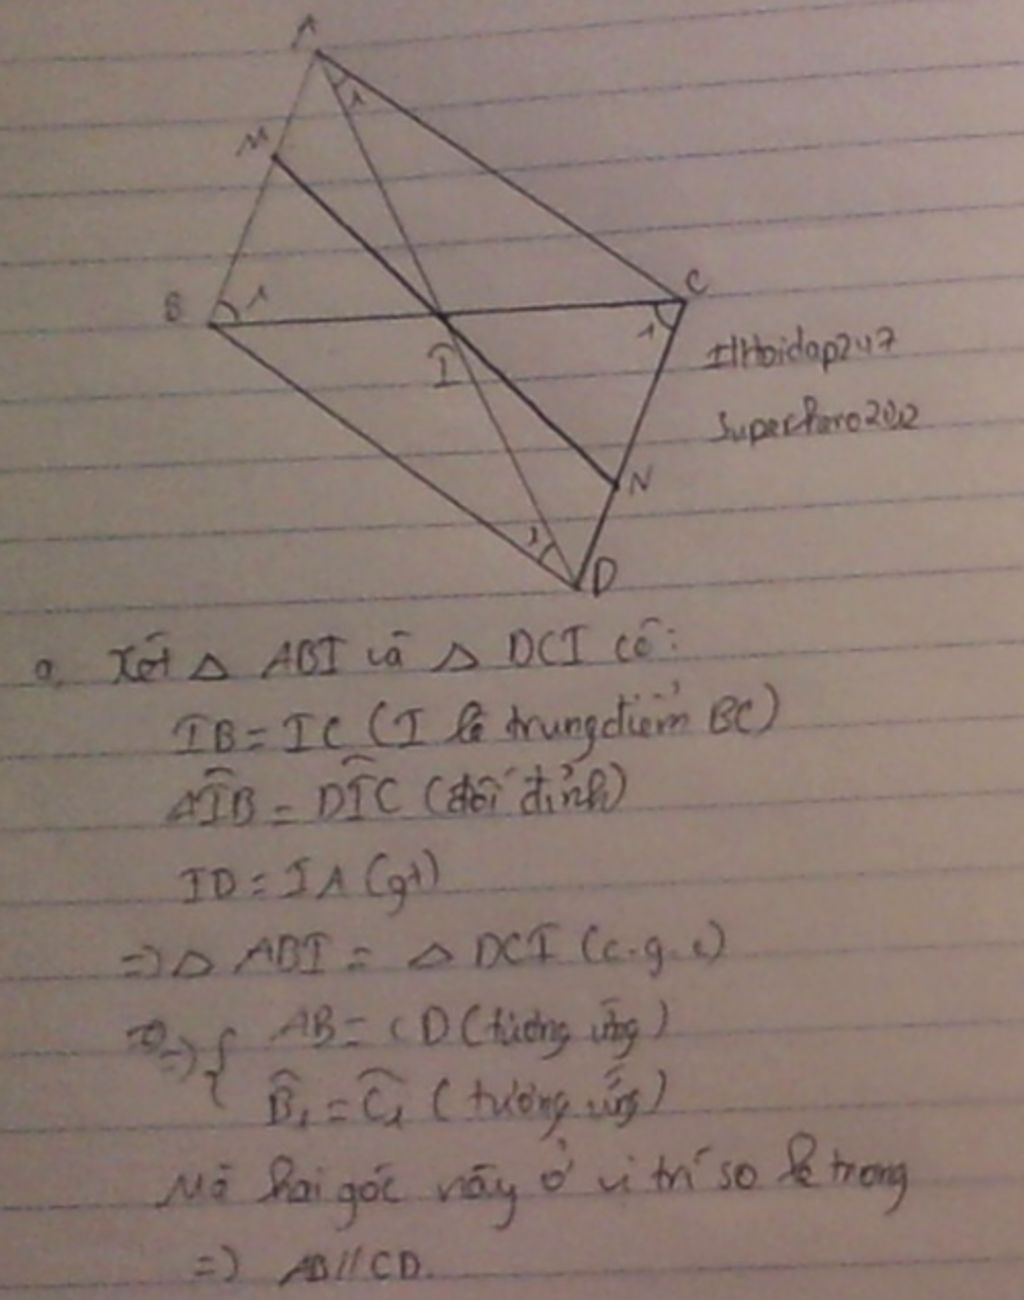 A
1
M
B 1
C
1
I
IIHoidap247
Superhero202
N
1
D
a. Xét △ ABI và △ DCI có:
IB = IC (I là trung điểm BC)
AÎB = DÎC (đối đỉnh)
ID = IA (gt)
=> △ ABI = △ DCI (c.g.c)
=> { AB = CD (tương ứng)
B̂₁ = Ĉ₁ (tương ứng)
Mà hai góc này ở vị trí so le trong
=> AB // CD.